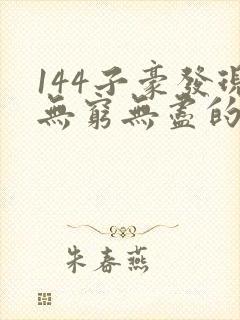 144子豪發現
無窮無盡的
朱春燕